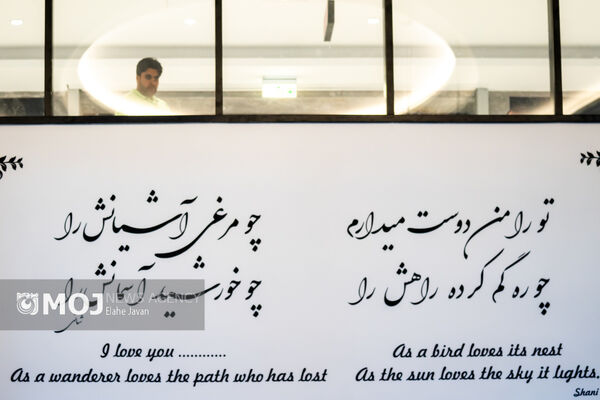 تو را من دوست میدارم
چو مرغی آشیانش را
چو ره گم کرده راهش را
چو خورشید آسمانش را
MOJ NEWS AGENCY
Elahe Javan
I love you ............
As a wanderer loves the path who has lost
As a bird loves its nest
As the sun loves the sky it lights.
Shani